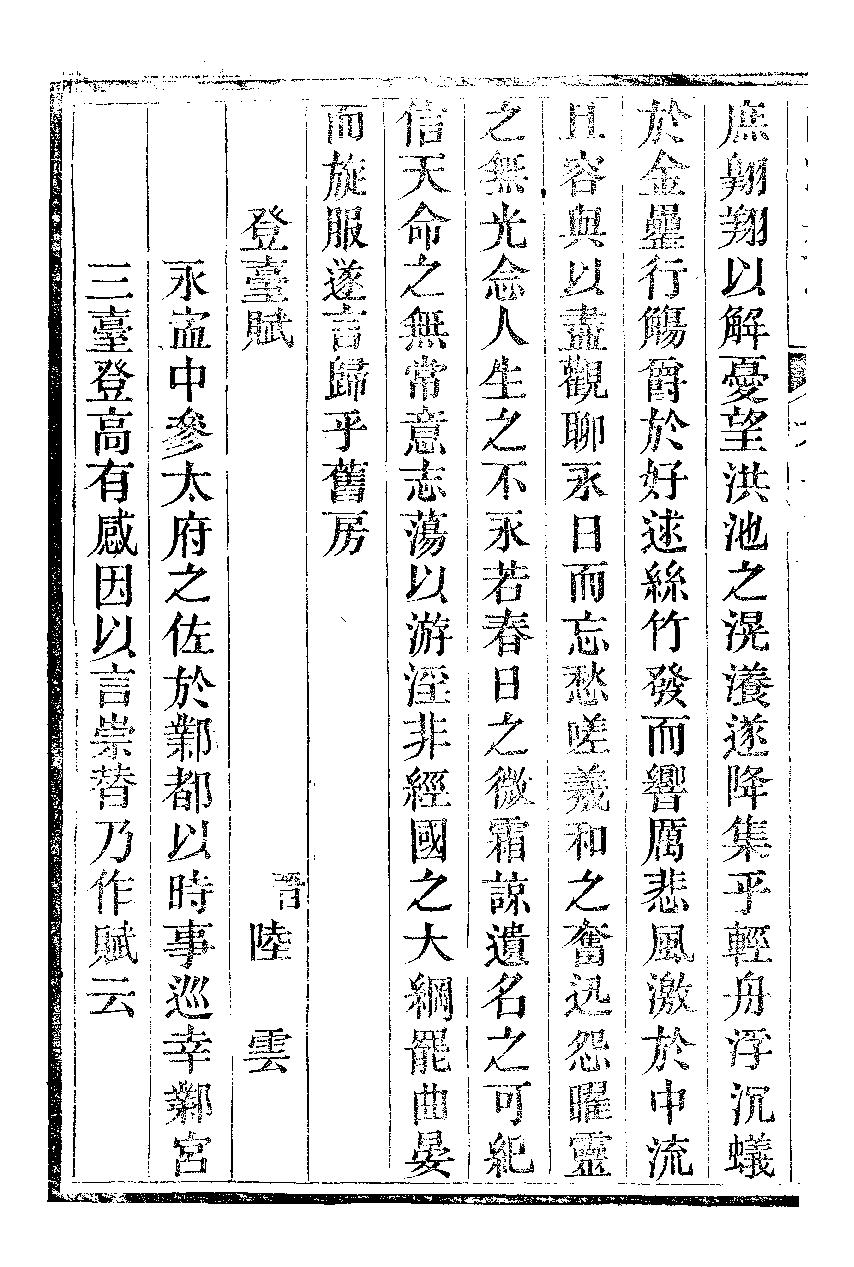 庶翺翔以解憂望洪池之滉瀁遂降集乎輕舟浮沉蟻
於金罍行觴爵於好逑絲竹發而響厲悲風激於中流
且容與以盡觀聊永日而忘愁嗟羲和之奮迅怨曜靈
之無光念人生之不永若春日之微霜諒遺名之可紀
信天命之無常意志蕩以游淫非經國之大綱罷曲宴
而旋服遂言歸乎舊房
登臺賦 晉陸雲
永寍中參太府之佐於鄴都以時事巡幸鄴宮
三臺登高有感因以言崇替乃作賦云